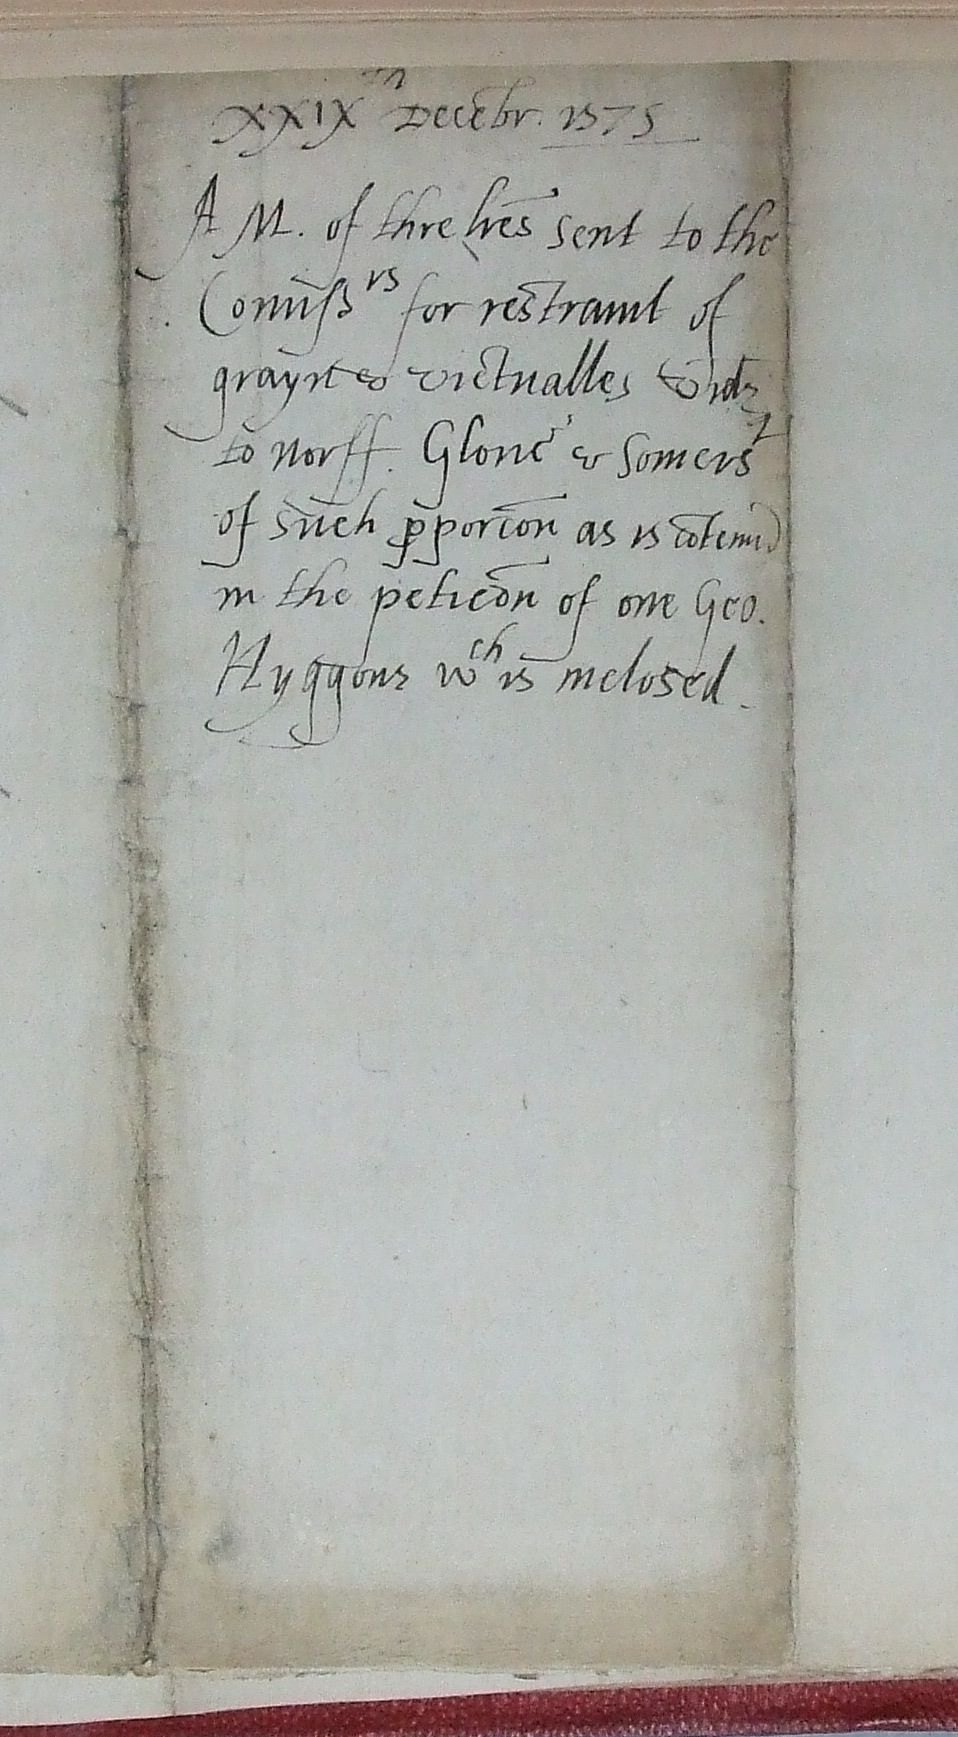 XXIXth Decēbr. 1575
A M. of thre lr̄es sent to the
Comiss̄rs for restraint of
grayn & victualles
to Norff. Glouc̄ & Somers
of such ꝓporcōn as is cōteinid
in the peticōn of one Geo.
Hyggons wch is inclosed.